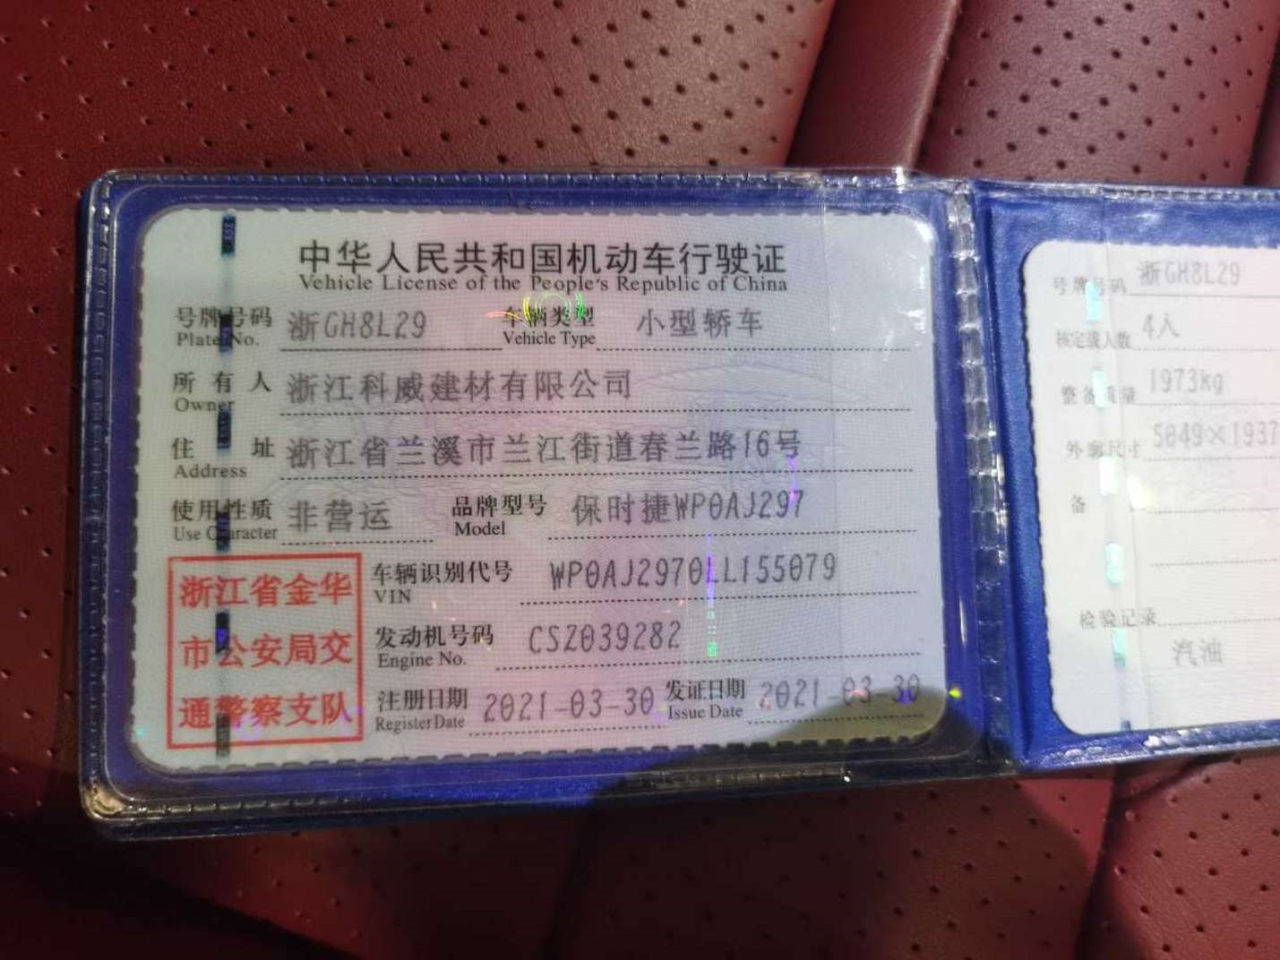 中华人民共和国机动车行驶证
Vehicle License of the People's Republic of China
号牌号码 浙GH8L29 车辆类型 小型轿车
Plate No. Vehicle Type
所有人 浙江科威建材有限公司
Owner
住址 浙江省兰溪市兰江街道春兰路16号
Address
使用性质 非营运 品牌型号 保时捷WP0AJ297
Use Character Model
浙江省金华
市公安局交
通警察支队
车辆识别代号 WP0AJ2970LL155079
VIN
发动机号码 CSZ039282
Engine No.
注册日期 2021-03-30 发证日期 2021-03-30
Register Date Issue Date
号牌号码 浙GH8L29
核定载人数 4人
整备质量 1973kg
外廓尺寸 5049×1937
备
检验记录
汽油